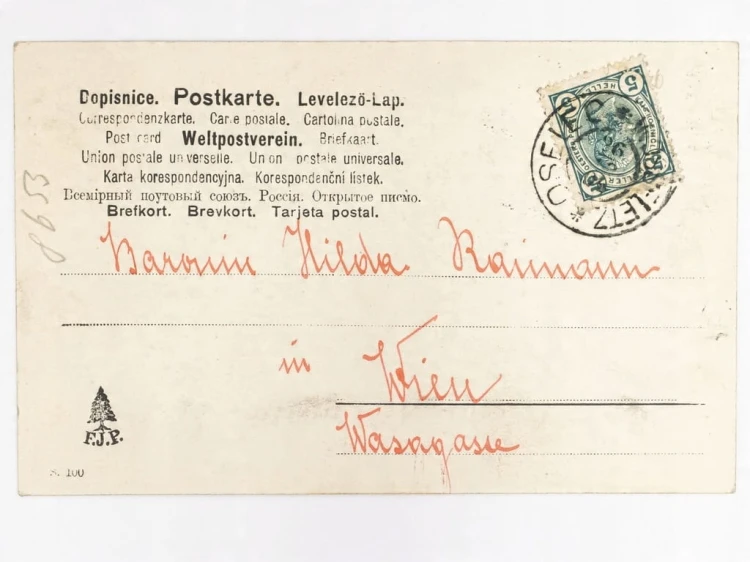 Dopisnice. Postkarte. Levelező-Lap.
Correspondenzkarte. Carte postale. Cartolina postale.
Post card Weltpostverein. Briefkaart.
Union postale universelle. Union postale universale.
Karta korespondencyjna. Korespondenční lístek.
Всемірный почтовый союзъ. Россія. Открытое письмо.
Brefkort. Brevkort. Tarjeta postal.
5
HELLER
8953
Baronin Hilda Raimann
in Wien
Wasagasse
F.J.P.
S. 100